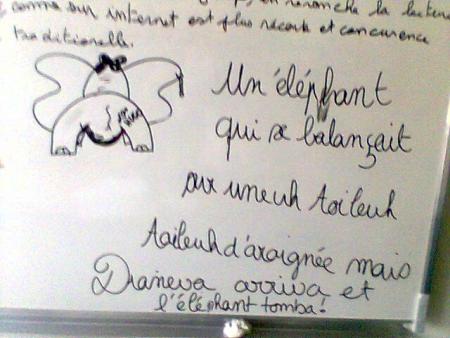 comme sur internet est plus récente et concurence
traditionelle.
en revanche la lecture
Un éléphant
qui se balançait
sur uneuh toileuh
toileuh d'araignée mais
Draneva arriva et
l'éléphant tomba!